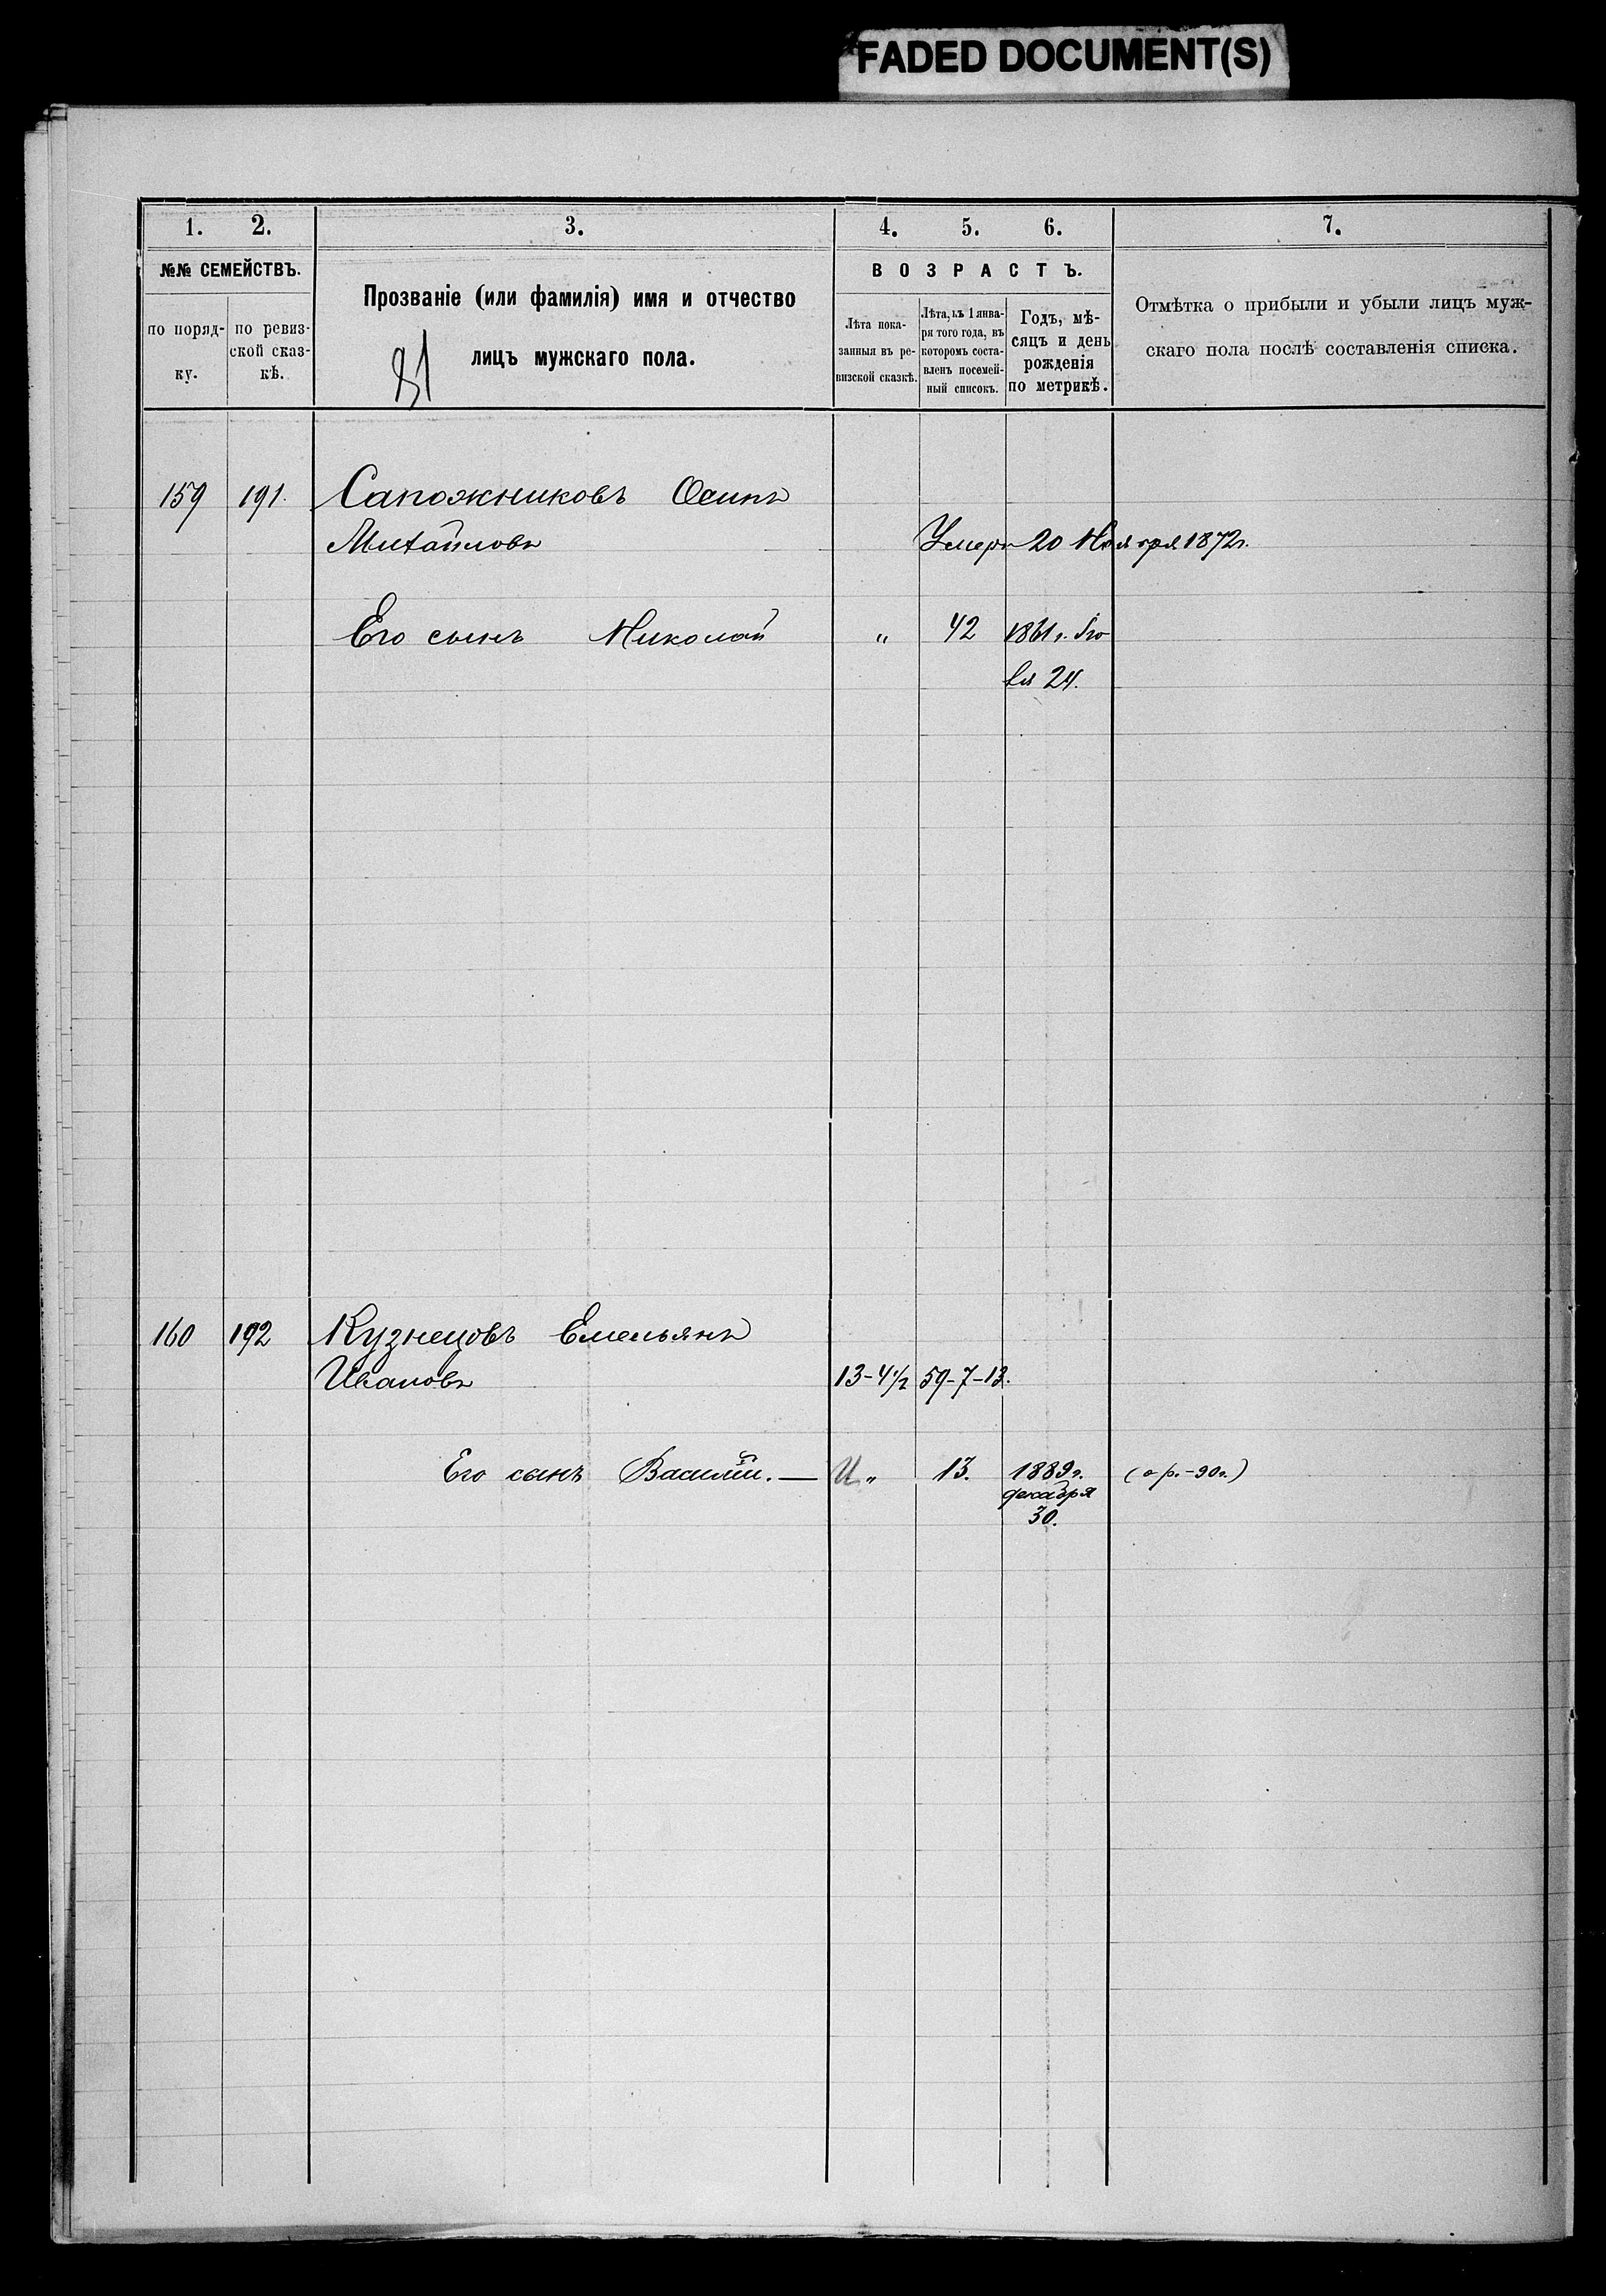 FADED DOCUMENT(S)
1. 2. 3. 4. 5. 6. 7.
№№ СЕМЕЙСТВЪ.
по поряд-
ку.
по ревиз-
ской сказ-
кѣ.
Прозваніе (или фамилія) имя и отчество
лицъ мужскаго пола.
ВОЗРАСТЪ.
Лѣта пока-
занныя въ ре-
визской сказкѣ.
Лѣта, къ 1 янва-
ря того года, въ
которомъ соста-
вленъ посемей-
ный списокъ.
Годъ, мѣ-
сяцъ и день
рожденія
по метрикѣ.
Отмѣтка о прибыли и убыли лицъ муж-
скаго пола послѣ составленія списка.
159 191. Сапожниковъ Осипъ
Михайловъ Умеръ 20 Ноября 1872г.
Его сынъ Николай " 42 1861 г.
24.
160 192 Кузнецовъ Емельянъ
Ивановъ 13-4½ 59-7-13.
Его сынъ Василій. — " 13. 1889г.
декабря
30.